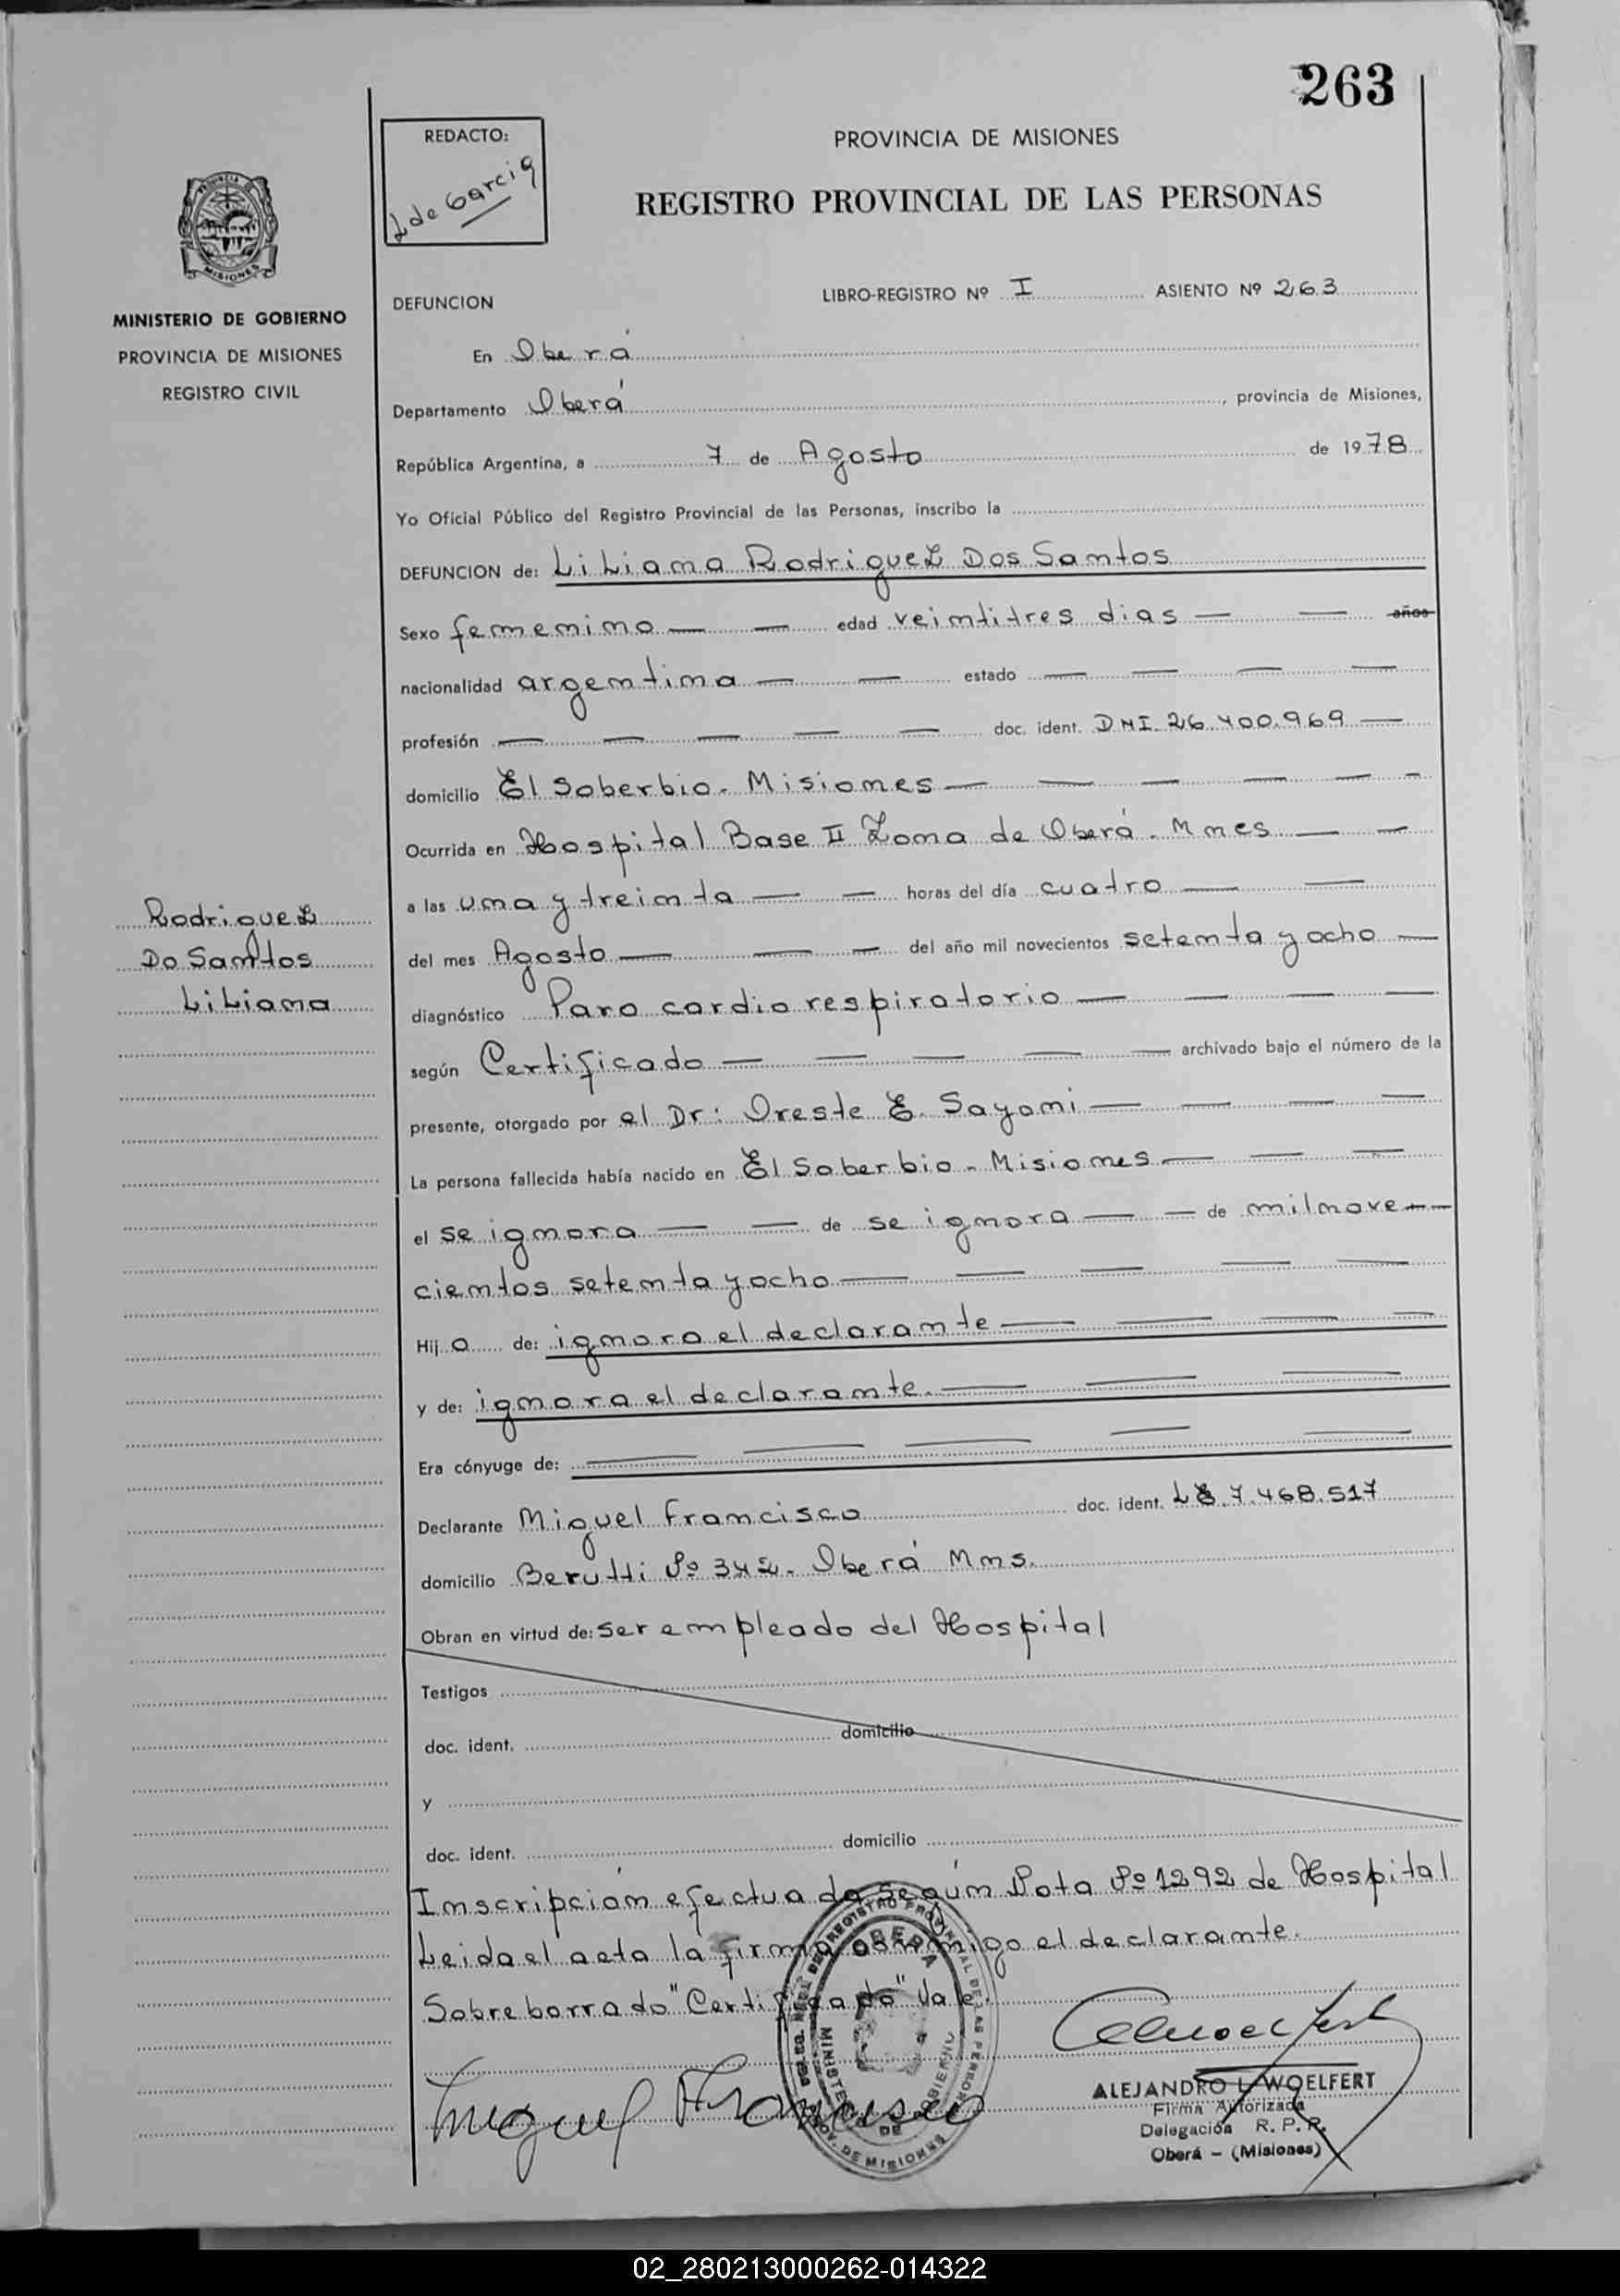 263
REDACTO:
L de Garcia
PROVINCIA DE MISIONES
REGISTRO PROVINCIAL DE LAS PERSONAS
MINISTERIO DE GOBIERNO
PROVINCIA DE MISIONES
REGISTRO CIVIL
DEFUNCION LIBRO-REGISTRO Nº I ASIENTO Nº 263
En Oberá
Departamento Oberá, provincia de Misiones,
República Argentina, a 7 de Agosto de 1978
Yo Oficial Público del Registro Provincial de las Personas, inscribo la
DEFUNCION de: Liliana Rodriguez Dos Santos
Sexo femenino — — edad veintitres dias — — años
nacionalidad argentina — — estado — — — —
profesión — — — — — doc. ident. DNI 26.400.969 —
domicilio El Soberbio. Misiones — — — — — –
Ocurrida en Hospital Base II Zona de Oberá. Mnes — —
a las una y treinta — — horas del día cuatro — —
del mes Agosto — — — del año mil novecientos setenta y ocho —
diagnóstico Paro cardio respiratorio — — — —
según Certificado — — — — — archivado bajo el número de la
presente, otorgado por el Dr: Oreste E. Sayani — — — —
La persona fallecida había nacido en El Soberbio - Misiones — — —
el se ignora — — de se ignora — — de milnove——
cientos setenta y ocho — — — — —
Hij a de: ignora el declarante — — — —
y de: ignora el declarante. — — —
Era cónyuge de: — — — — —
Declarante Miguel Francisco doc. ident. LE 7.468.517
domicilio Berutti Nº 342. Oberá Mns.
Obran en virtud de: ser empleado del Hospital
Testigos
doc. ident. domicilio
y
doc. ident. domicilio
Inscripción efectuada según Nota Nº 1292 de Hospital
Leida el acta la firma conmigo el declarante.
Sobreborrado "Certificado" Vale.
Rodriguez
Do Santos
Liliana
Miguel Francisco
OBERA
ALEJANDRO L. WOELFERT
Firma Autorizada
Delegación R. P. P.
Oberá - (Misiones)
02_280213000262-014322